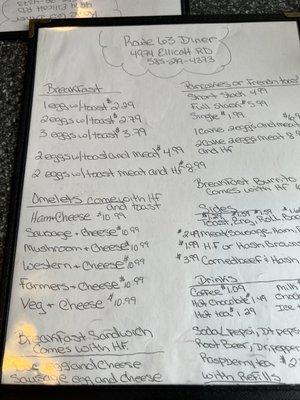 Route 63 Diner
4974 Ellicott RD
Breakfast
1 eggs w/toast $2.29
2 eggs w/toast $2.79
3 eggs w/toast $3.79
2 eggs w/toast and meat $4.99
2 eggs w/toast meat and HF $8.99
Omelets come with HF
and toast
Ham + Cheese $10.99
Sausage + Cheese $10.99
Mushroom + Cheese $10.99
Western + Cheese $10.99
Farmers + Cheese $10.99
Veg + Cheese $10.99
Breakfast Sandwich
Comes with H.F.
egg and Cheese
Sausage egg and cheese
Pancakes or French toast
Short Stack 4.99
Full Stack $5.99
Single $1.99
1 Cake 2 eggs and meat
2 Cake 2 eggs meat
and HF
Breakfast Burrito
Comes with HF
Sides
$2.49 meat Sausage, Ham,
$1.99 H.F or Hash Brown
$3.99 Corned beef Hash
Drinks
Coffee $1.09
Hot Chocolate $1.49
Hot tea $1.29
Soda (pepsi, Dt. pepsi
Root Beer, Dr. pepper
Raspberry tea
with Refills